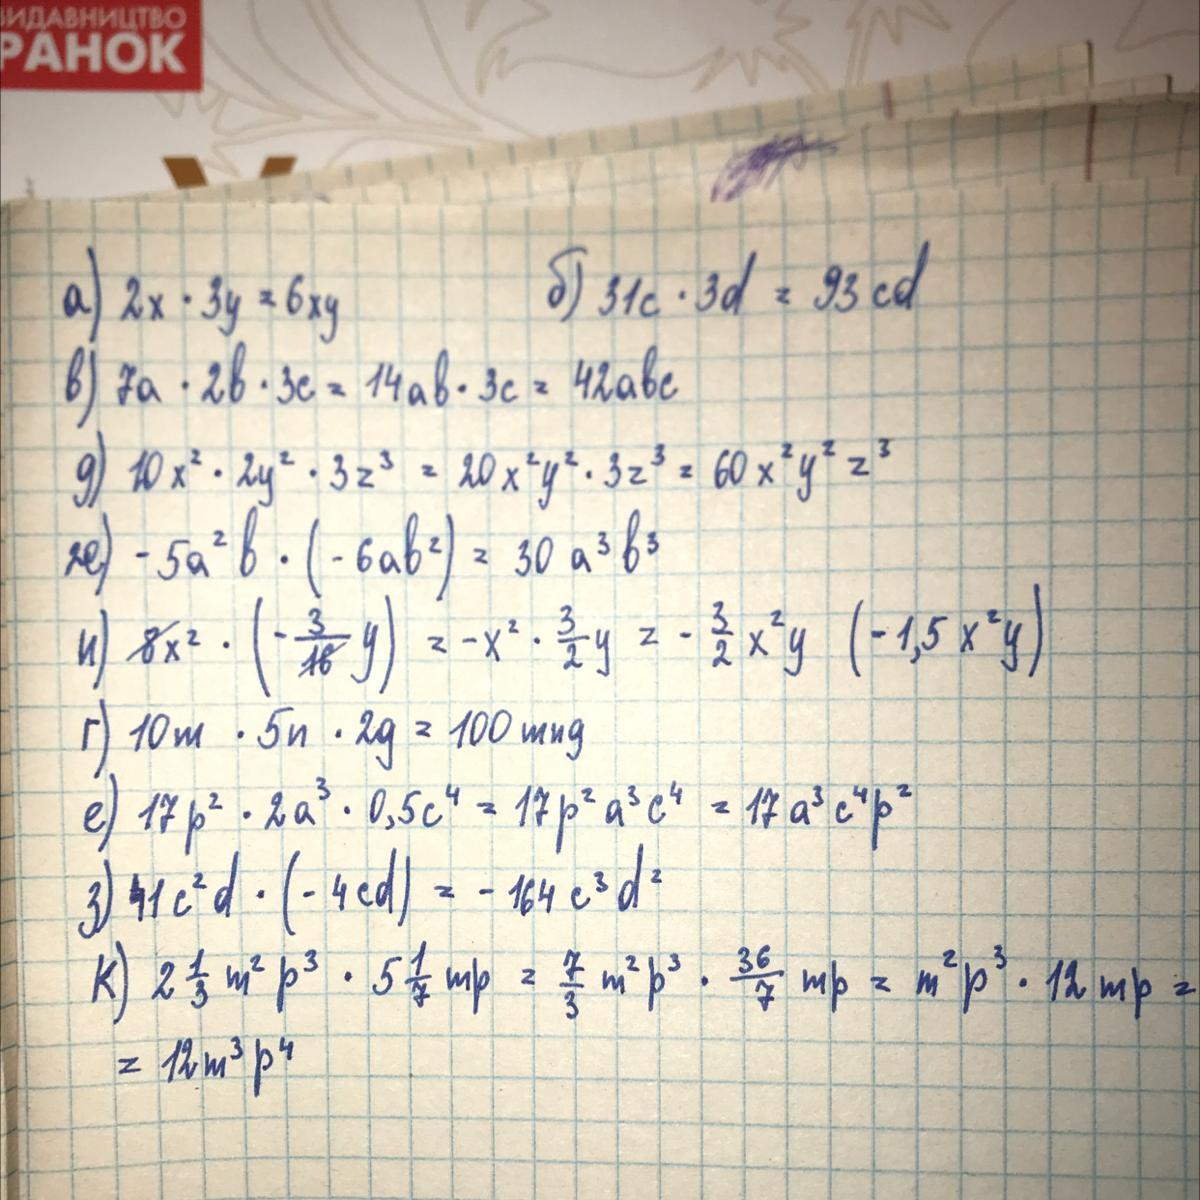 ВИДАВНИЦТВО
РАНОК
а) 2x · 3y = 6xy б) 31c · 3d = 93cd
в) 7a · 2b · 3c = 14ab · 3c = 42abc
д) 10x² · 2y² · 3z³ = 20x²y² · 3z³ = 60x²y²z³
ж) -5a²b · (-6ab²) = 30a³b³
и) 8x² · (-3/16 y) = -x² · 3/2 y = -3/2 x²y (-1,5x²y)
г) 10m · 5n · 2g = 100mng
е) 17p² · 2a³ · 0,5c⁴ = 17p²a³c⁴ = 17a³c⁴p²
з) 41c²d · (-4cd) = -164c³d²
к) 2 1/3 m²p³ · 5 1/7 mp = 7/3 m²p³ · 36/7 mp = m²p³ · 12mp =
= 12m³p⁴